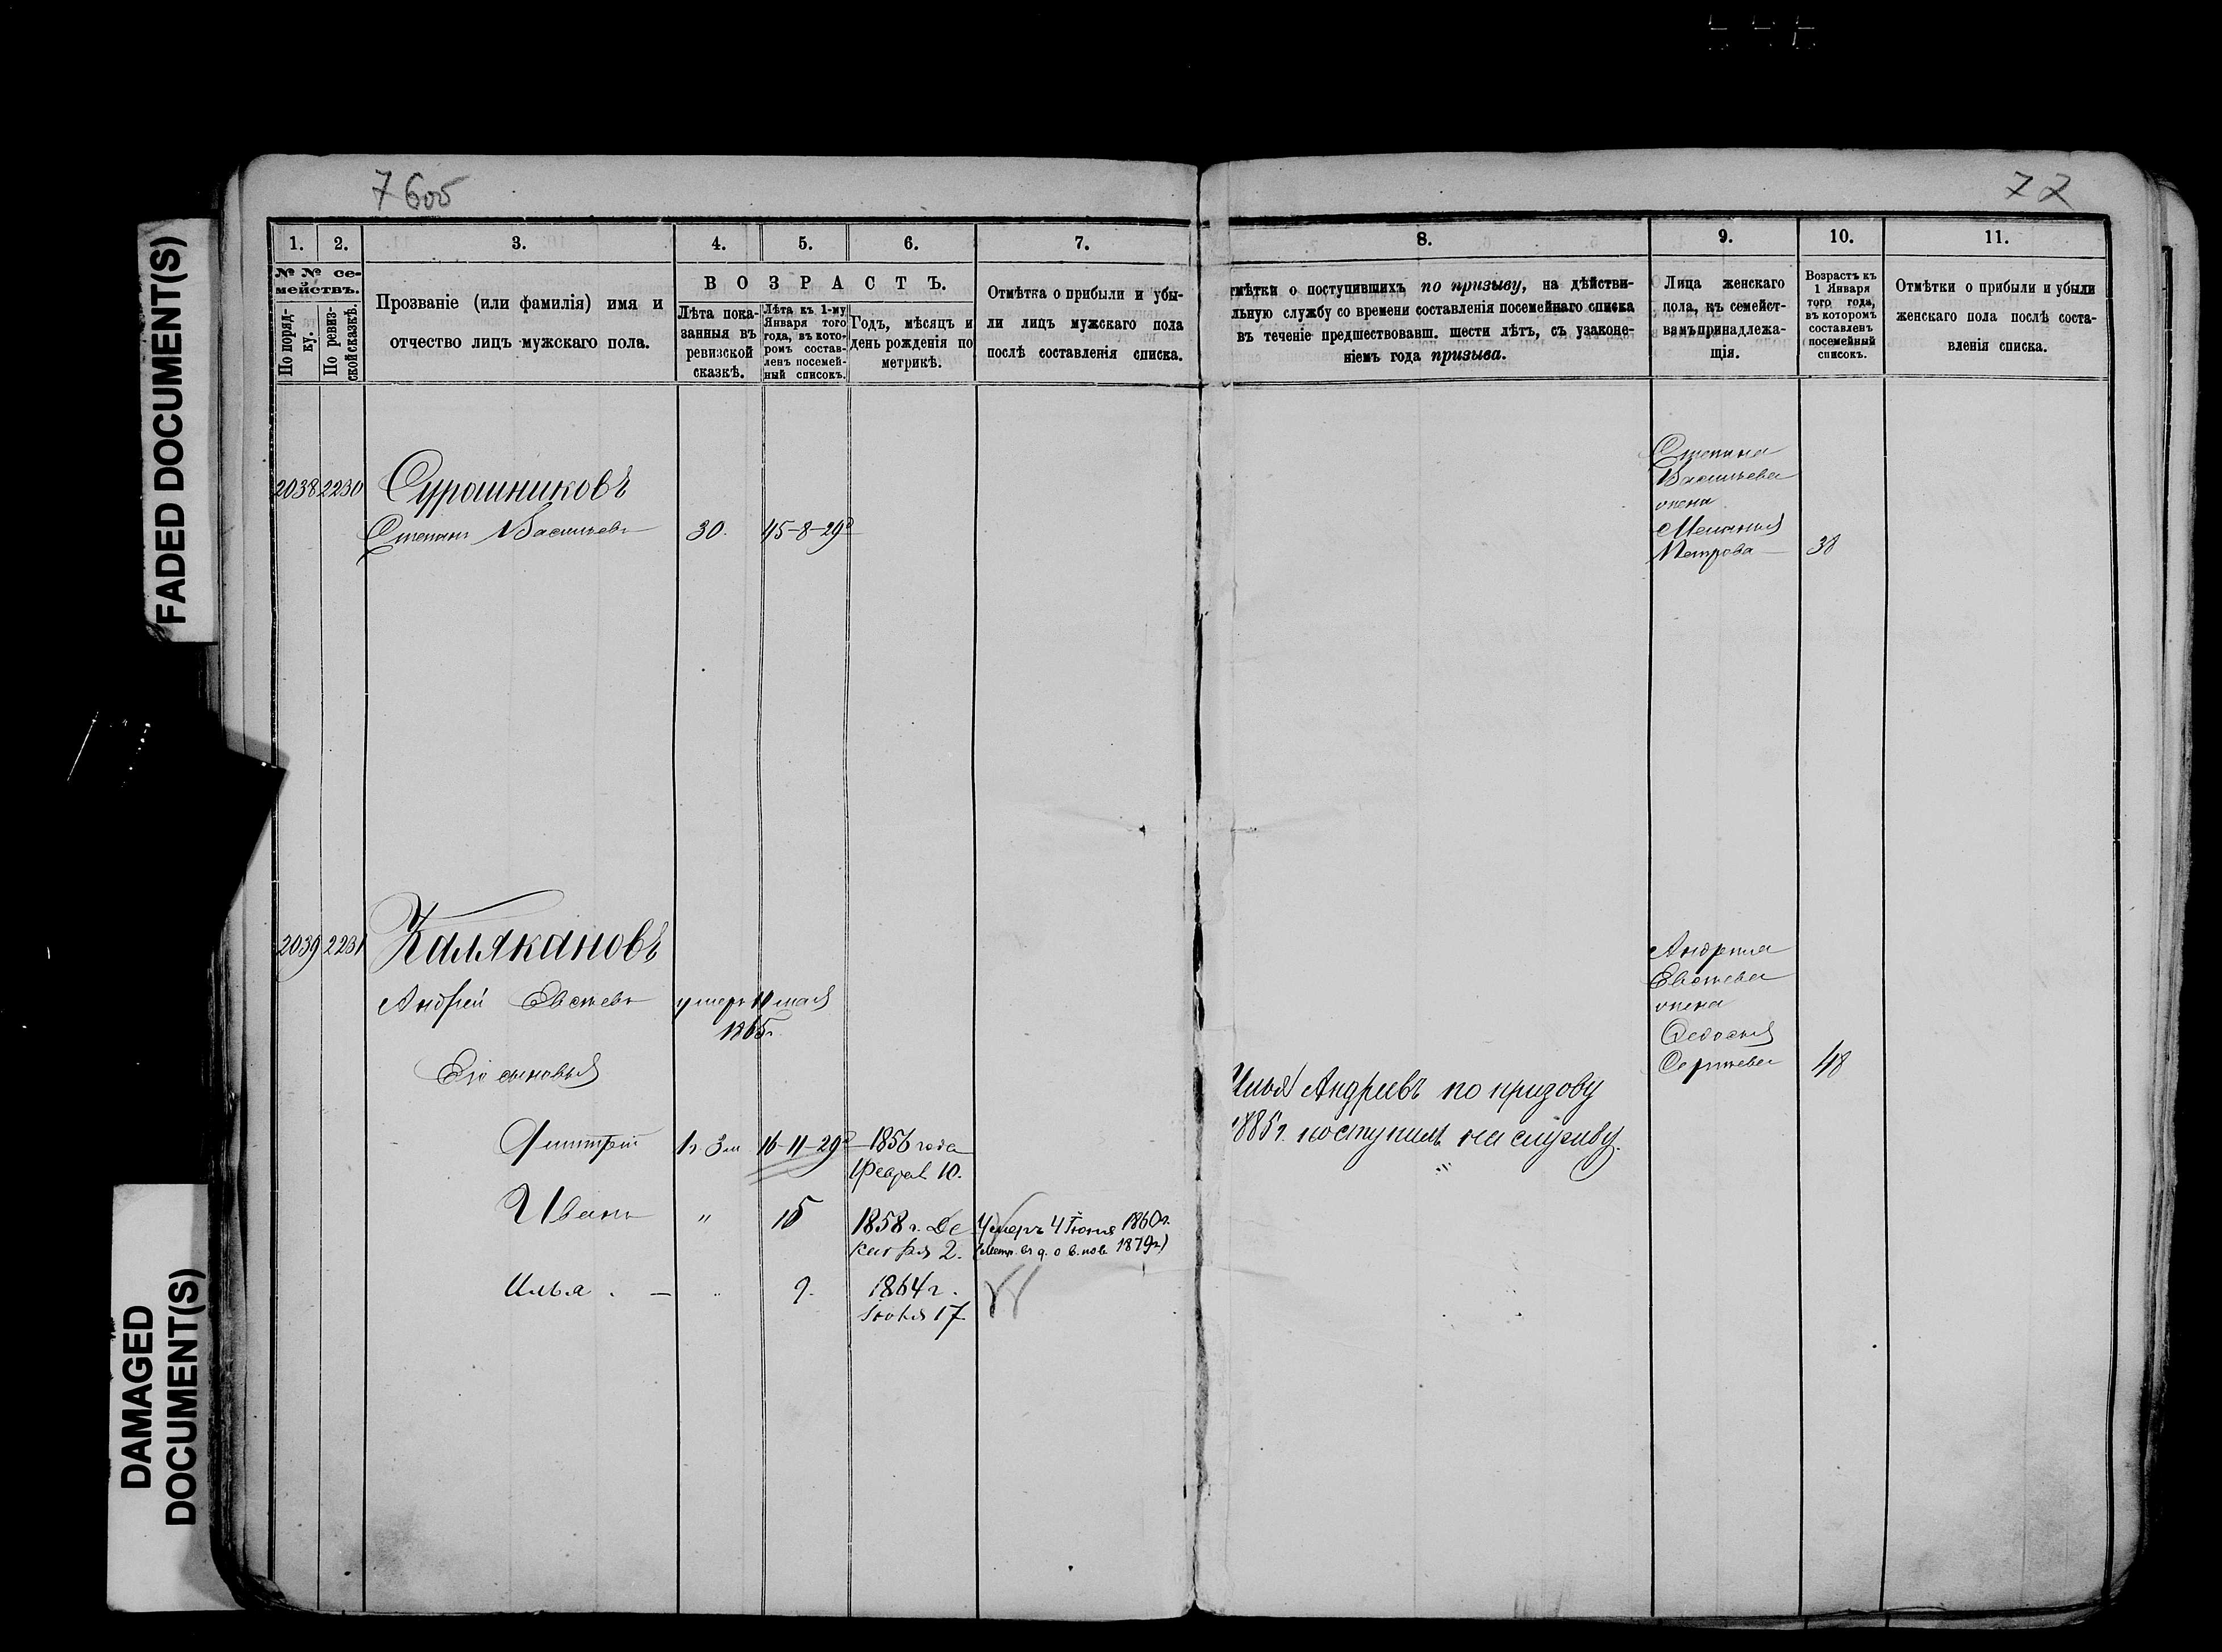 FADED DOCUMENT(S)
DAMAGED
DOCUMENT(S)
7605
72
1.
2.
3.
4.
5.
6.
7.
8.
9.
10.
11.
№ № се-
мействъ.
По поряд-
ку.
По ревиз-
ской сказкѣ.
Прозваніе (или фамилія) имя и
отчество лицъ мужскаго пола.
ВОЗРАСТЪ.
Лѣта пока-
занныя въ
ревизской
сказкѣ.
Лѣта къ 1-му
Января того
года, въ кото-
ромъ состав-
ленъ посемей-
ный списокъ.
Годъ, мѣсяцъ и
день рожденія по
метрикѣ.
Отмѣтка о прибыли и убы-
ли лицъ мужскаго пола
послѣ составленія списка.
тмѣтки о поступившихъ по призыву, на дѣйстви-
льную службу со времени составленія посемейнаго списка
въ теченіе предшествовавш. шести лѣтъ, съ узаконе-
ніемъ года призыва.
Лица женскаго
пола, къ семейст-
вамъ принадлежа-
щія.
Возрастъ къ
1 Января
того года,
въ которомъ
составленъ
посемейный
списокъ.
Отмѣтки о прибыли и убыли
женскаго пола послѣ соста-
вленія списка.
2038 2230
Степанъ Васильевъ 30. 45-8-29д
Степана
Васильева
жена
Меланія
Петрова 38
2039 2231 Калякановъ
Андрей Евсѣевъ умеръ 11 мая
1865г.
Его сыновья
Дмитрій 1г. 3м 16-11-29д 1856 года
Феврал 10.
Иванъ " 15 1858 г. Де
кабря 2.
Умеръ 4 Іюня 1860г.
1879г)
Илья " 9. 1864 г.
Іюля 17
Илья Андреевъ по призову
1885г. поступилъ на службу.
Андрея
Евсѣева
жена
Ѳедосья
Сергѣева 48